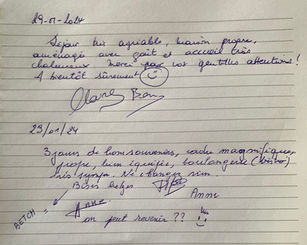 29-01-2024
Séjour très agréable, maison propre,
aménagée avec goût et accueil très
chaleureux Merci pour vos gentilles attentions !
A bientôt sûrement
Claire
23/01/24
3 jours de bons souvenirs, cadre magnifique,
propre, bien équipée, boulangerie (bistro)
très sympa. Ne changez rien.
Bises belges
Anne
BETCH =
Anne
on peut revenir ??